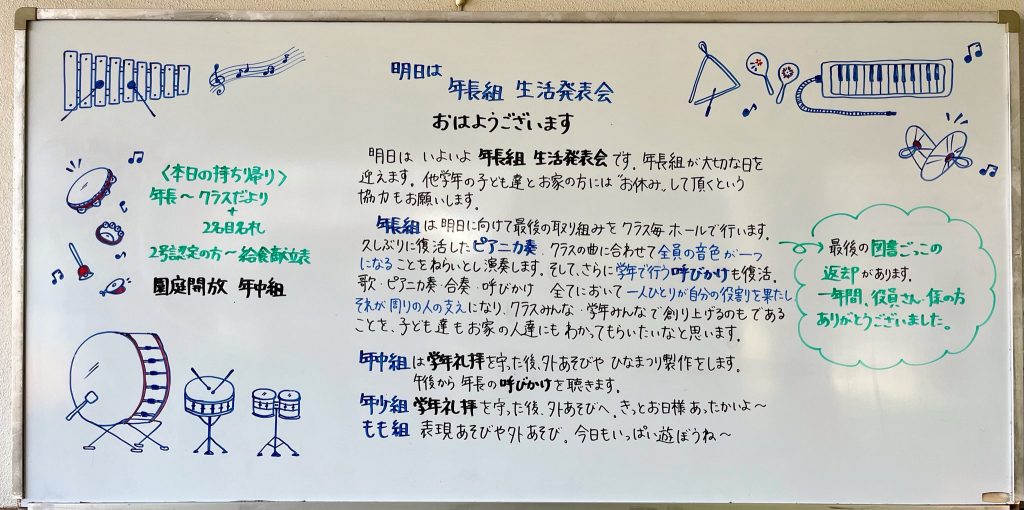 明日は
年長組 生活発表会
おはようございます
〈本日の持ち帰り〉
年長～クラスだより
+
2名目名札
2号認定の方～給食献立表
園庭開放 年中組
明日は いよいよ 年長組 生活発表会です。年長組が大切な日を
迎えます。他学年の子ども達とお家の方には"お休み"して頂くという
協力もお願いします。
年長組は明日に向けて最後の取り組みをクラス毎 ホールで行います。
久しぶりに復活したピアニカ奏。クラスの曲に合わせて全員の音色が一つ
になることをねらいとし演奏します。そして、さらに学年で行う呼びかけも復活。
歌・ピアニカ奏・合奏・呼びかけ 全てにおいて一人ひとりが自分の役割を果たし
それが周りの人の支えになり、クラスみんな・学年みんなで創り上げるものである
ことを、子ども達もお家の人達にもわかってもらいたいなと思います。
年中組は学年礼拝を守った後、外あそびや ひなまつり製作をします。
午後から 年長の呼びかけを聴きます。
年少組 学年礼拝を守った後、外あそびへ。きっとお日様あったかいよ～
もも組 表現あそびや外あそび。今日もいっぱい遊ぼうね～
最後の図書ごっこの
返却があります。
一年間、役員さん・係の方
ありがとうございました。